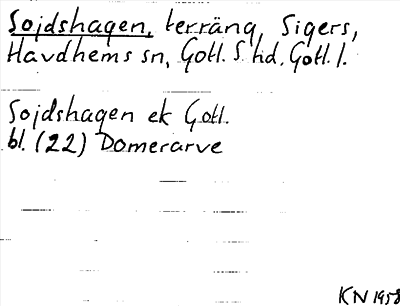 Sojdshagen, terräng, Sigers,
Havdhems sn, Gotl. S. hd, Gotl. l.
Sojdshagen ek Gotl.
bl. (22) Domerarve
KN 1958